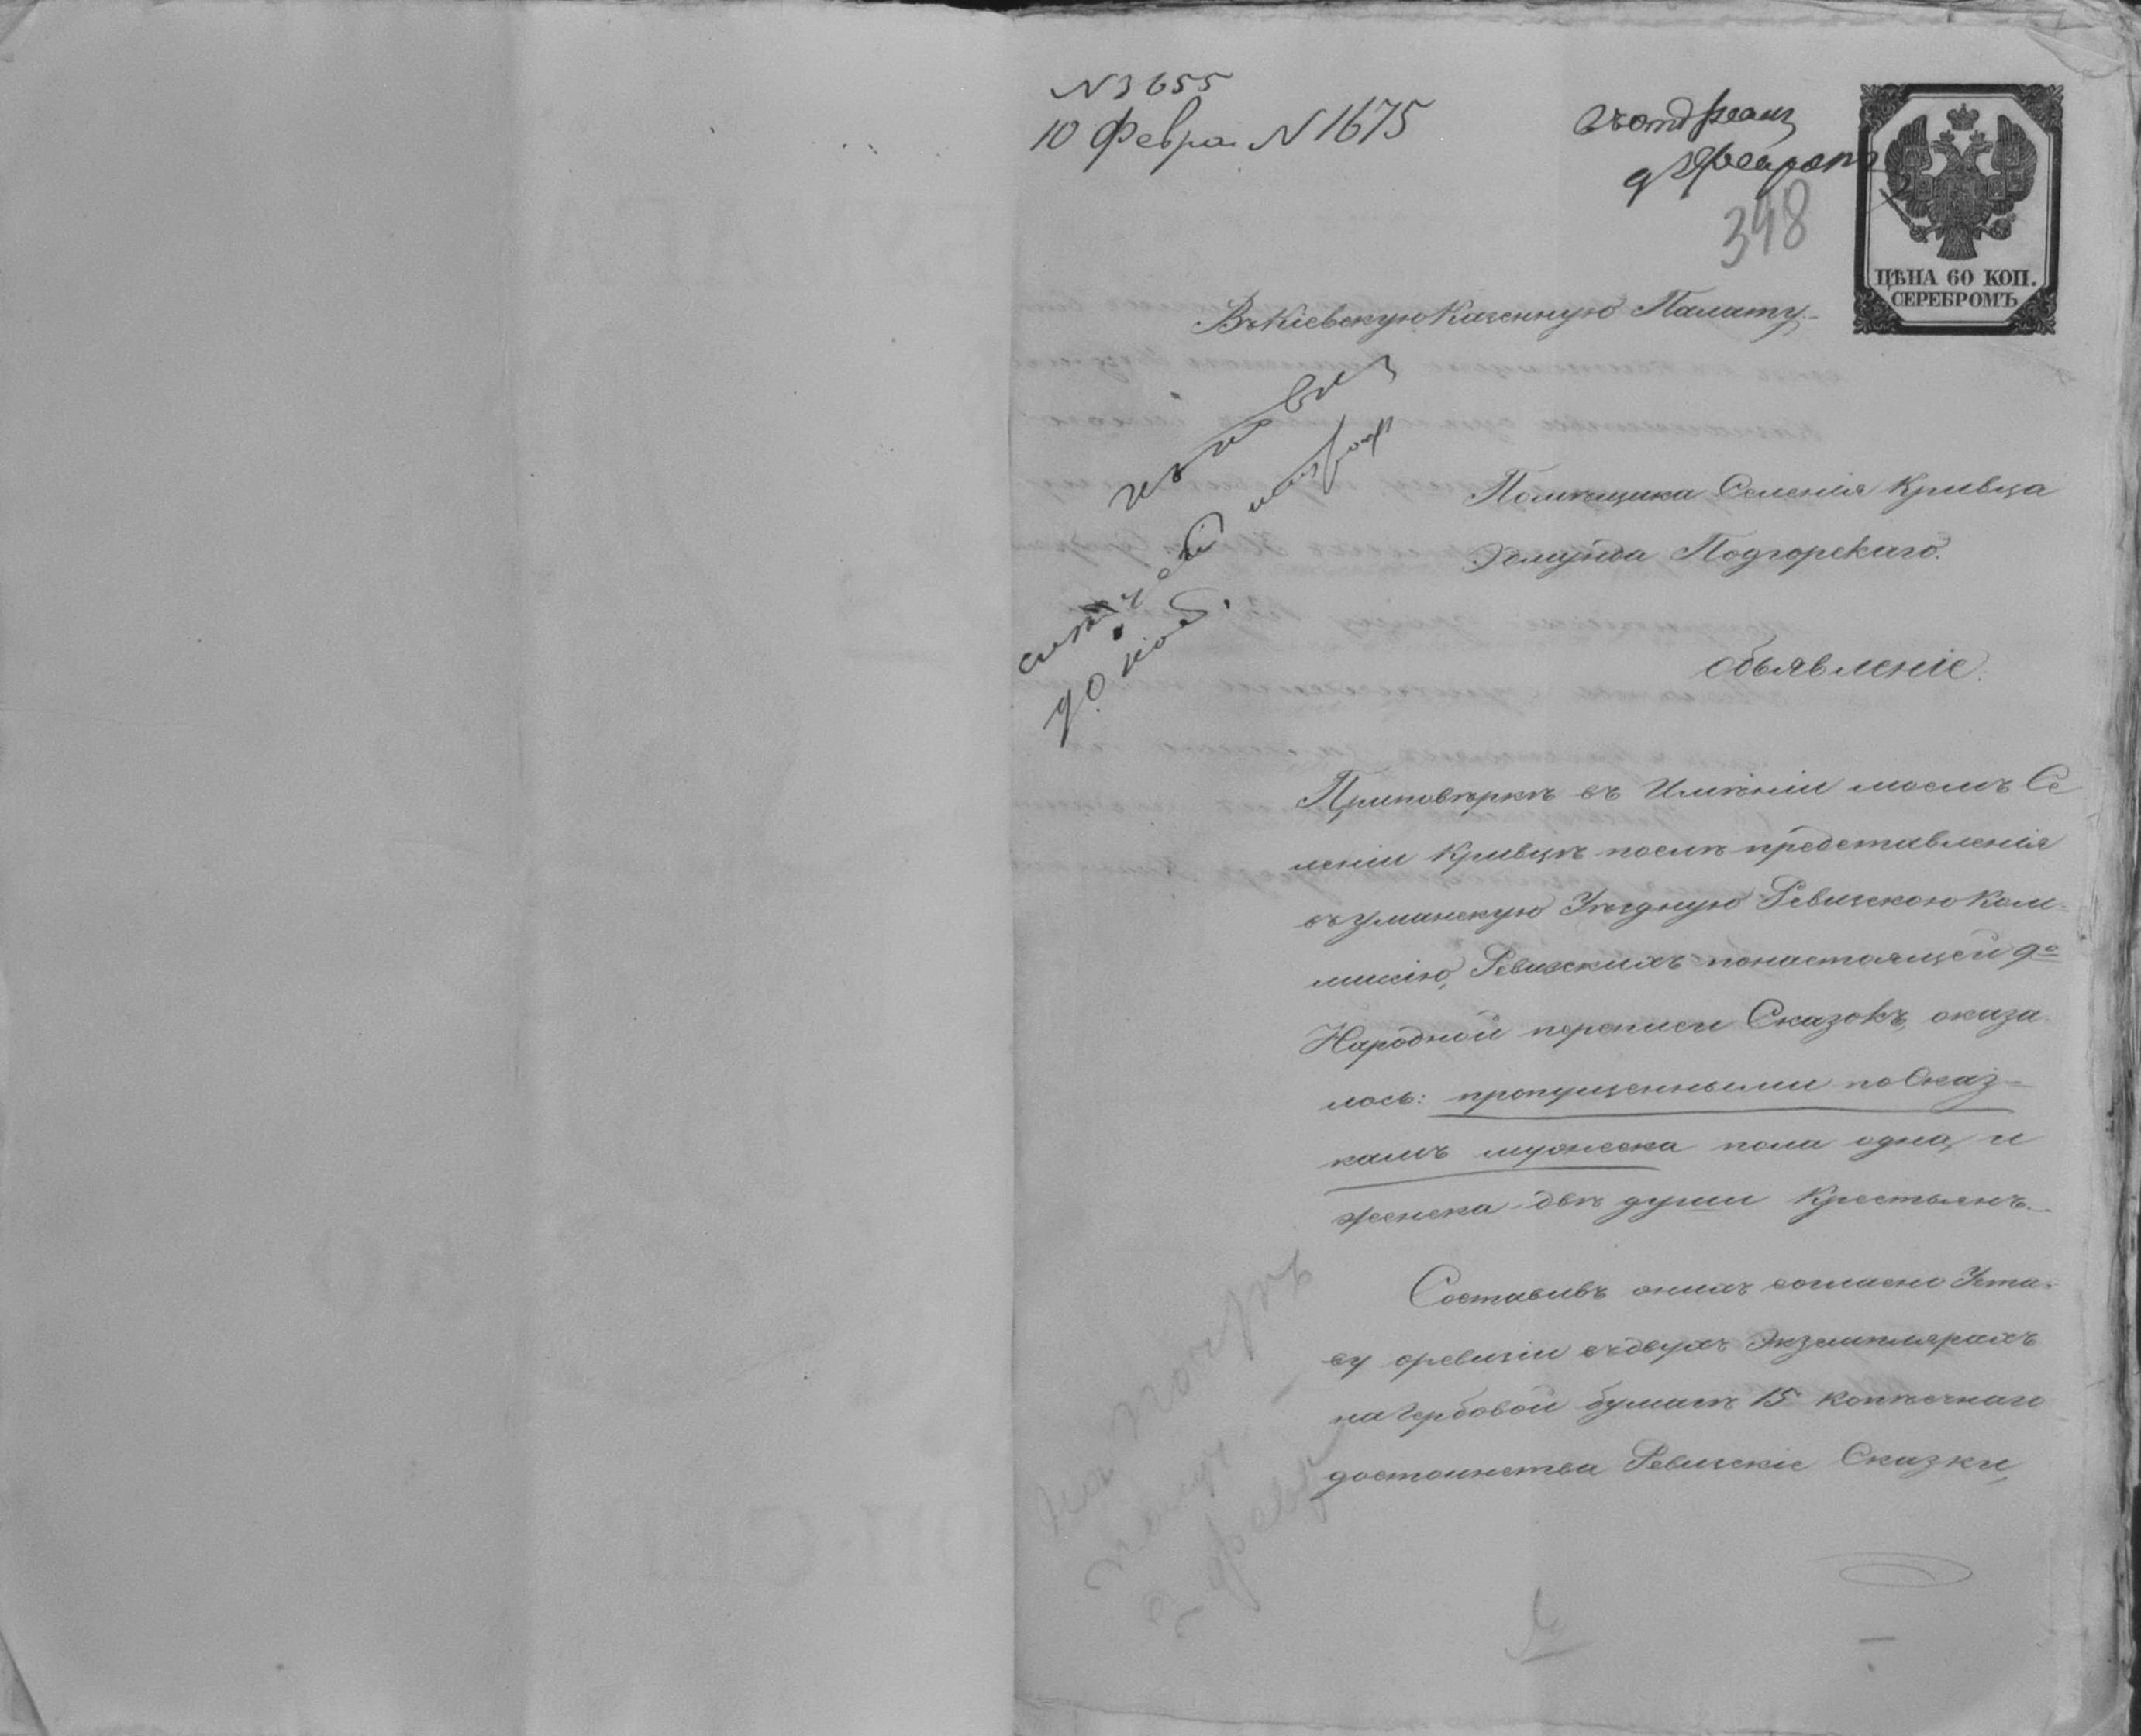 N 3655
10 Февра. N 1675
348
ЦѢНА 60 КОП.
СЕРЕБРОМЪ
Въ Кіевскую Казенную Палату
Помѣщика Селенія Кривца
Эдмунда Подгорскаго.
объявленіе.
При повѣркѣ въ Имѣніи моемъ Се
леніи Кривцѣ послѣ представленія
въ Уманскую Уѣздную Ревизскою Ком-
мисію, Ревизскихъ по настоящей 9й
Народной переписи Сказокъ, оказа
лось: пропущенными по Сказ-
камъ мужеска пола одна, и
женска двѣ души Крестьянъ.
Составивъ онимъ согласно Уста-
ву о ревизіи въ двухъ Экземплярахъ
на Гербовой бумагѣ 15 копѣечнаго
достоинства Ревизскіе Сказки,